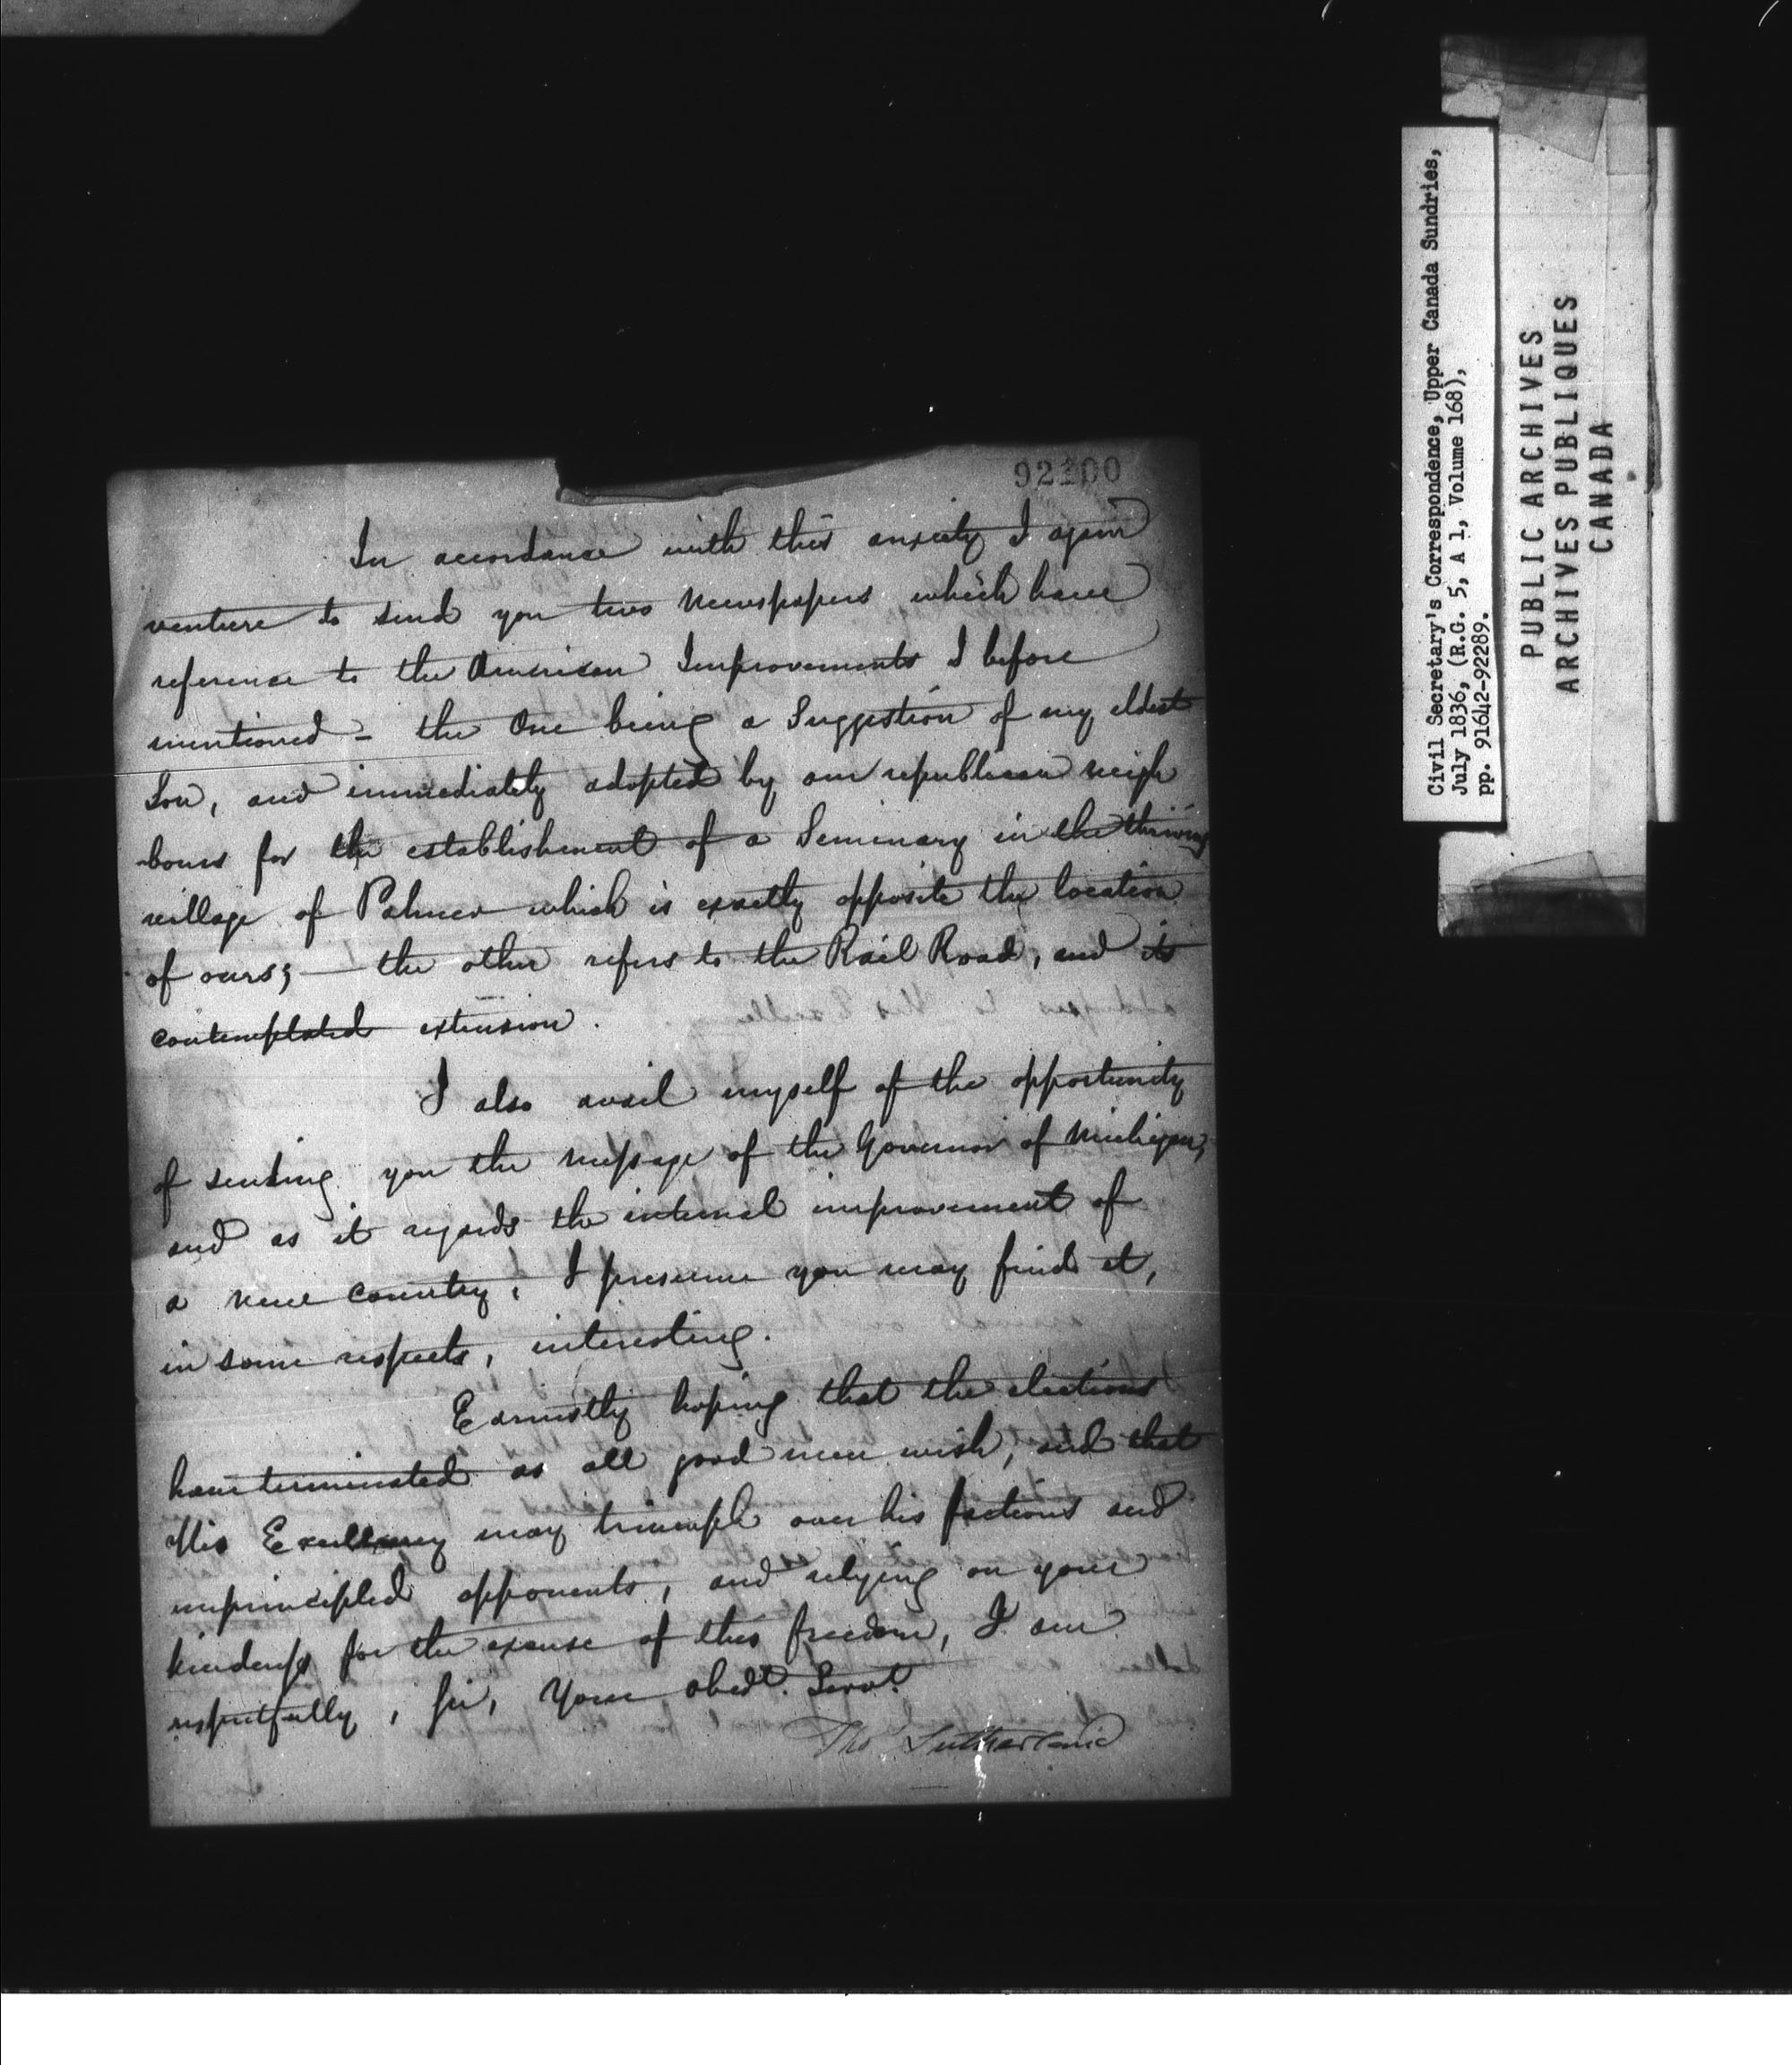 92100
In accordance with this anxiety I again
venture to send you two Newspapers which have
reference to the American Improvements I before
mentioned - the One being a Suggestion of my eldest
Son, and immediately adopted by our republican neigh
-bours for the establishment of a Seminary in the thriving
village of Palmer which is exactly opposite the location
of ours; — the other refers to the Rail Road, and its
contemplated extension.
I also avail myself of the opportunity
of sending you the message of the Governor of Michigan,
and as it regards the internal improvement of
a new country, I presume you may find it,
in some respects, interesting.
Earnestly hoping that the elections
have terminated as all good men wish, and that
His Excellency may triumph over his factious and
unprincipled opponents, and relying on your
kindness for the excuse of this freedom, I am
respectfully, Sir, Your obedt. Servt.
Thos Sutherland
Civil Secretary's Correspondence, Upper Canada Sundries,
July 1836, (R.G. 5, A 1, Volume 168),
pp. 91642-92289.
PUBLIC ARCHIVES
ARCHIVES PUBLIQUES
CANADA